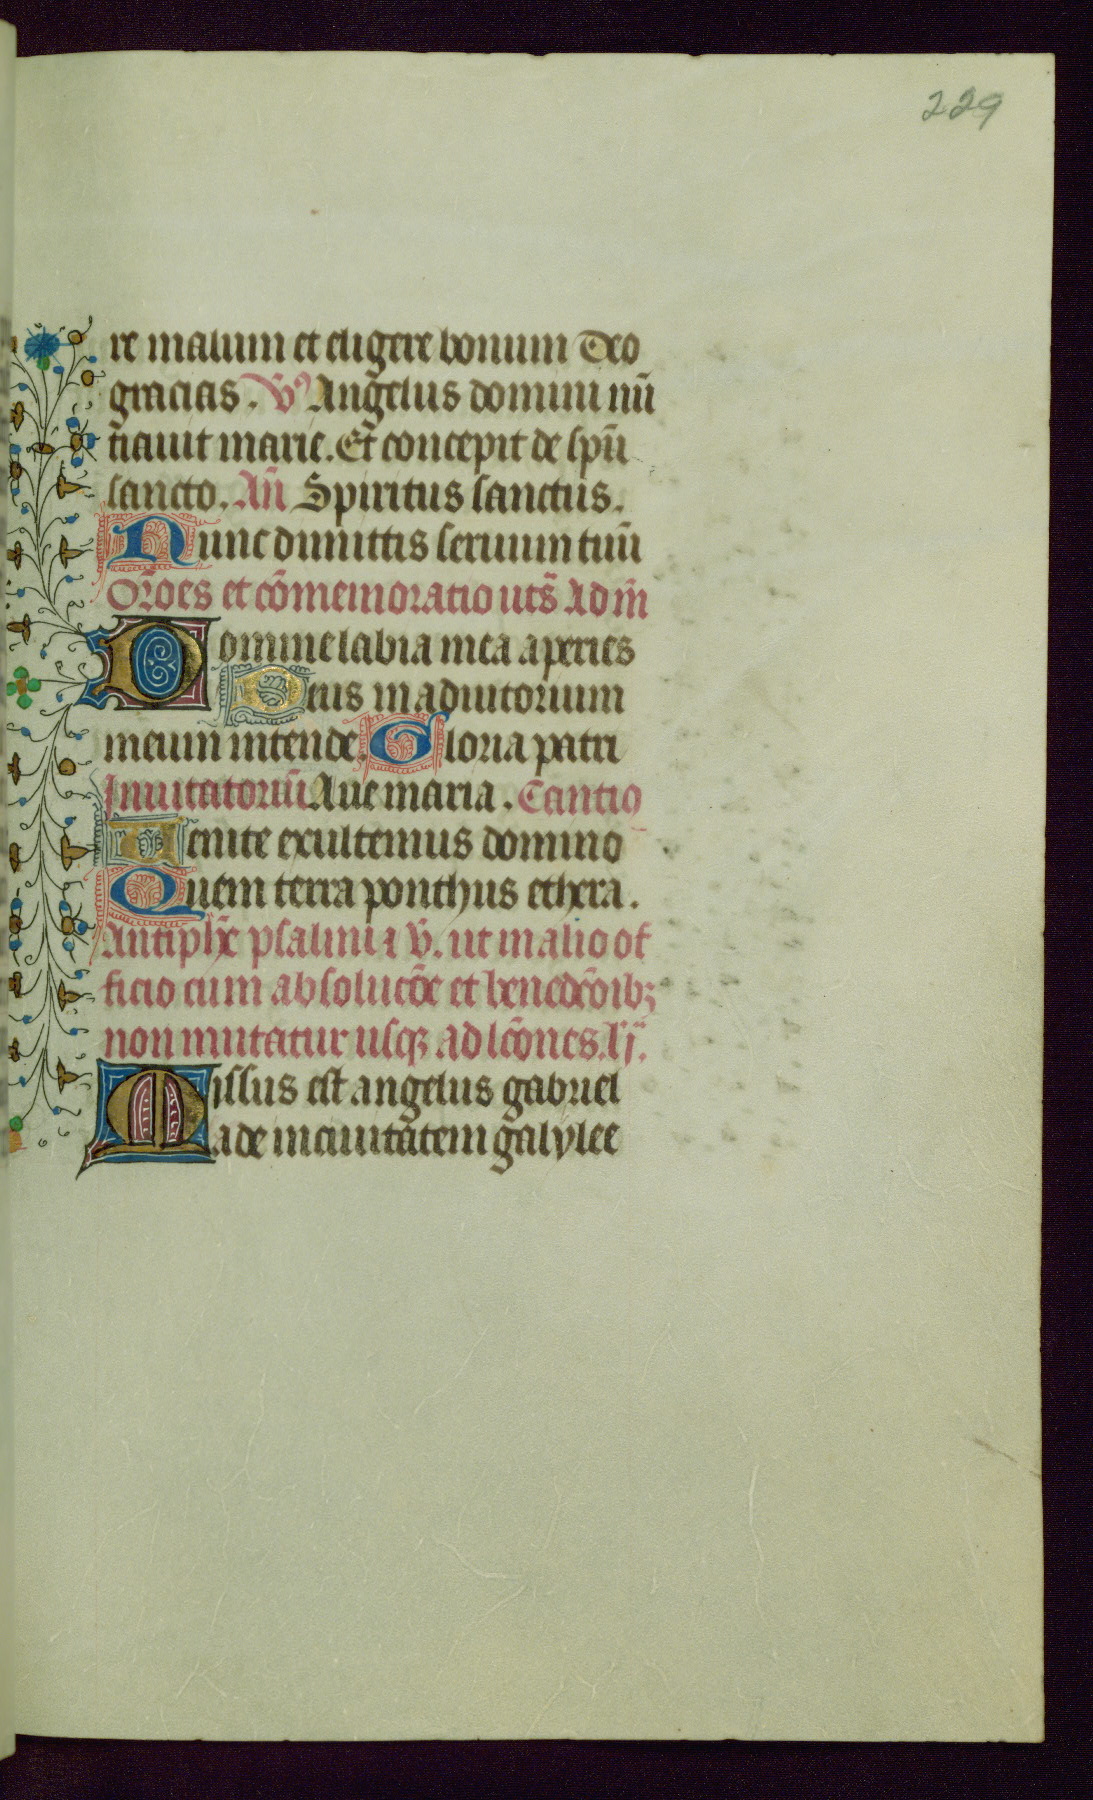 229
re malum et eligere bonum Deo
gracias. V̉ Angelus domini nū
tiauit marie. Et concepit de spū
sancto. Añ Spiritus sanctus.
Nunc dimittis seruum tuū
Or̄oēs et cōmemoratio ut s̄ Ad m̄
Domine labia mea aperies
Deus in adiutorium
meum intende Gloria patri
Inuitatoriū Aue maria. Cantic̄
Uenite exultemus domino
Quem terra ponthus ethera.
Antiphē psalmi ⁊ v̄. ut in alio of
ficio cum absolucōe et benedcōib;
non mutatur usq; ad lcōnes. Ij̄.
Missus est angelus gabriel
ad e in ciuitatem galylee